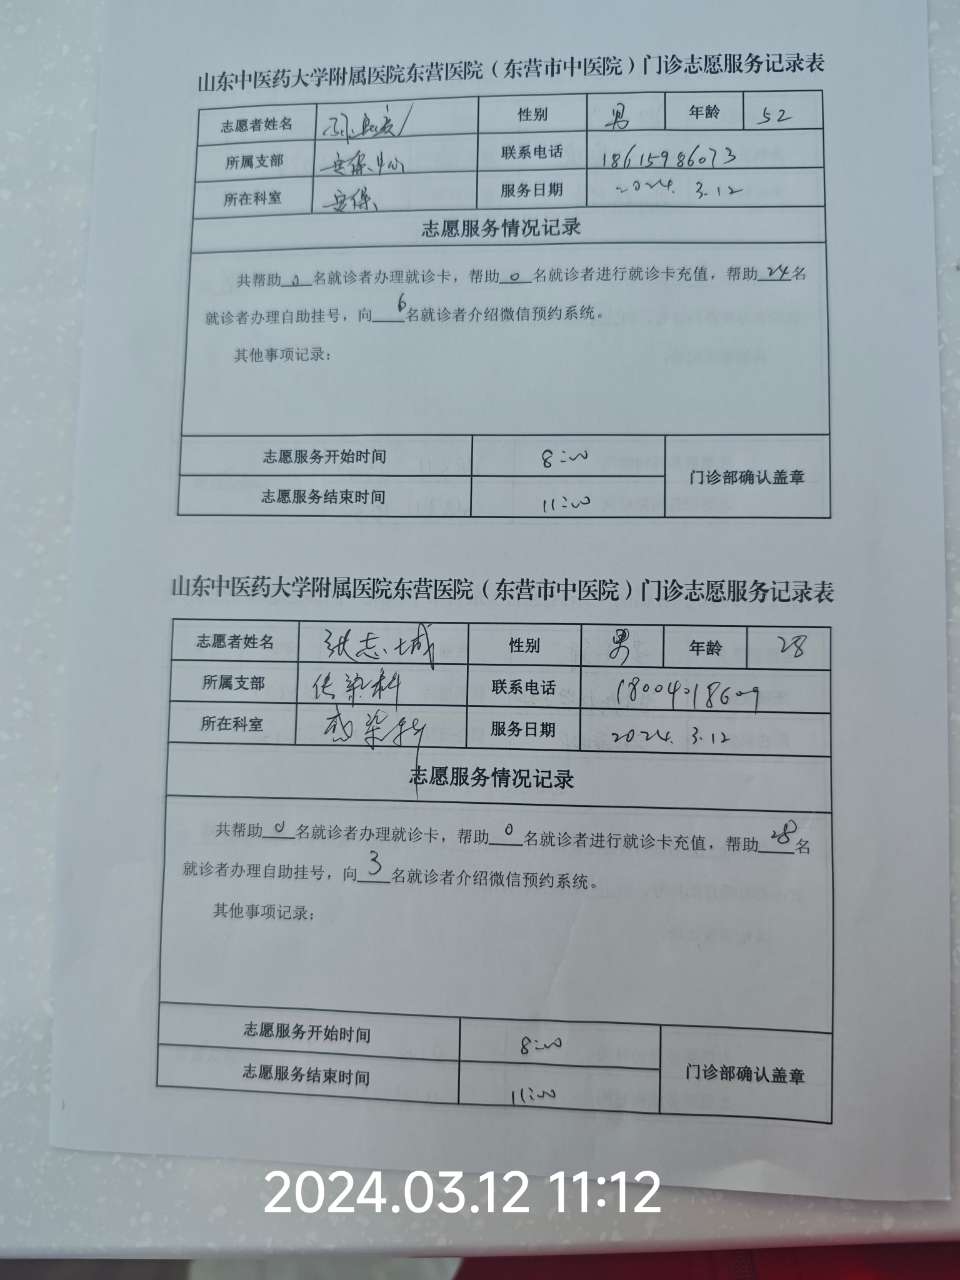 山东中医药大学附属医院东营医院（东营市中医院）门诊志愿服务记录表
志愿者姓名 性别 男 年龄 52
所属支部 安保 联系电话 18615986073
所在科室 安保 服务日期 2024. 3.12
志愿服务情况记录
共帮助 0 名就诊者办理就诊卡，帮助 0 名就诊者进行就诊卡充值，帮助 24 名
就诊者办理自助挂号，向 6 名就诊者介绍微信预约系统。
其他事项记录：
志愿服务开始时间 8:00
门诊部确认盖章
志愿服务结束时间 11:00
山东中医药大学附属医院东营医院（东营市中医院）门诊志愿服务记录表
志愿者姓名 张志城 性别 男 年龄 28
所属支部 传染科 联系电话 18004018609
所在科室 感染科 服务日期 2024. 3.12
志愿服务情况记录
共帮助 0 名就诊者办理就诊卡，帮助 0 名就诊者进行就诊卡充值，帮助 28 名
就诊者办理自助挂号，向 3 名就诊者介绍微信预约系统。
其他事项记录：
志愿服务开始时间 8:00
门诊部确认盖章
志愿服务结束时间 11:00
2024.03.12 11:12